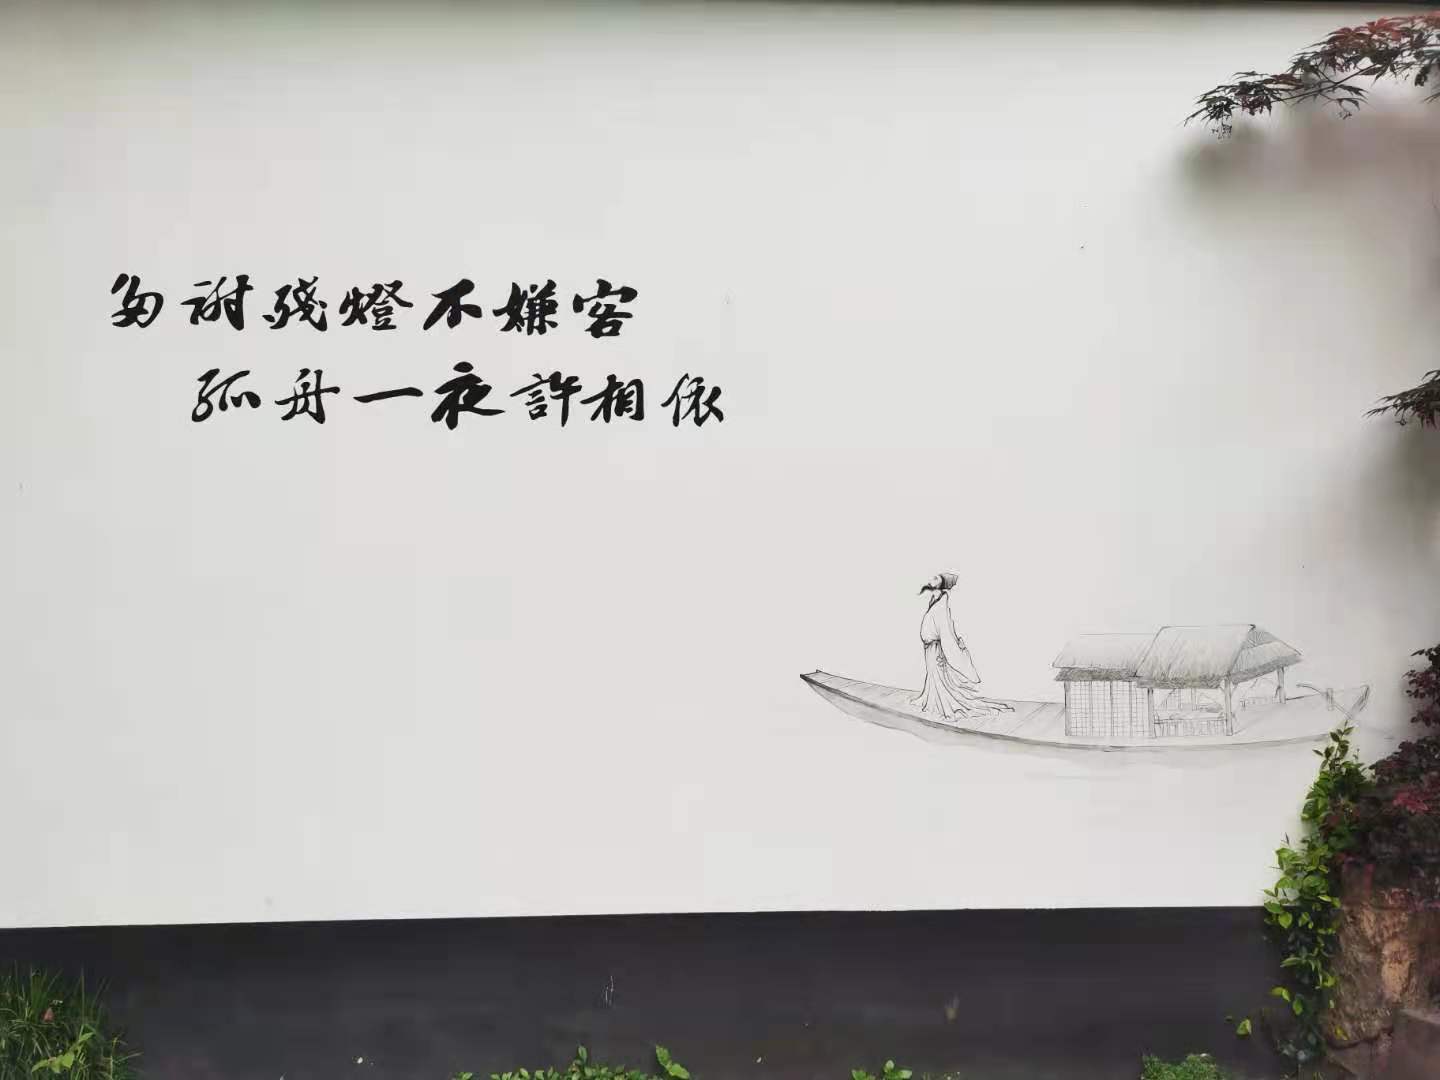 多謝残燈不嫌客
孤舟一夜許相依